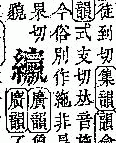 徒到切集韻韻會
韻式支切放音
今俗別作絁非是
果切
廣韻
聽
廣韻